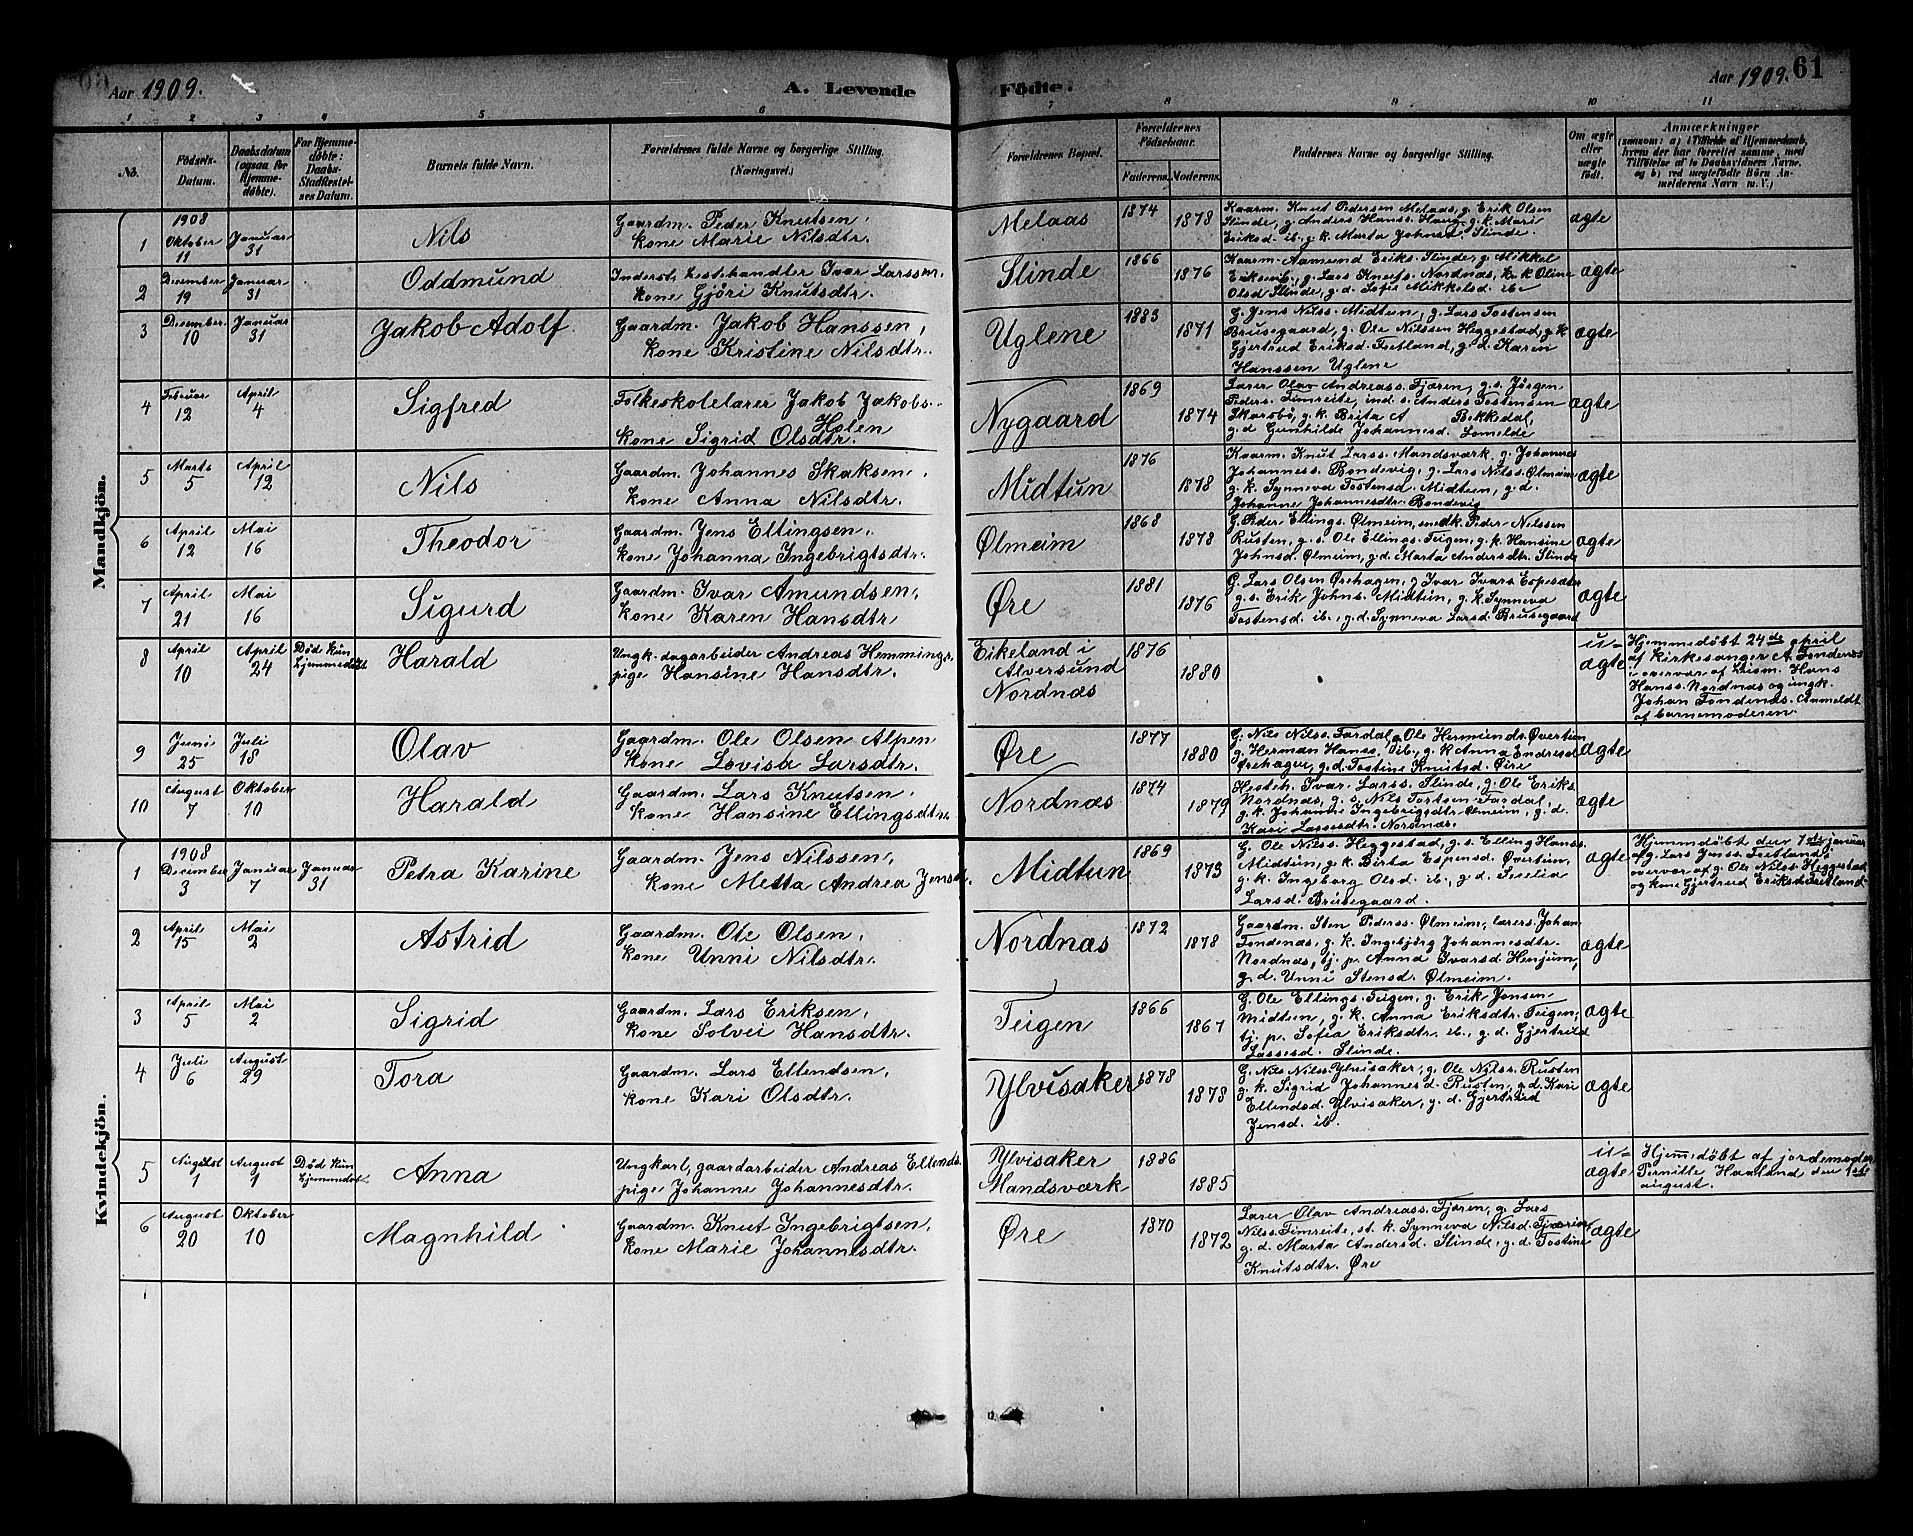 Aar 1909.
A. Levende
Födte.
Aar 1909.
61
1 2 3 4 5 6 7 8 9 10 11
No.
Födsels-
Datum.
Daabsdatum
(ogsaa for
Hjemme-
döbte).
For Hjemme-
döbte:
Daabs-
Stadfæstel-
ses Datum.
Barnets fulde Navn.
Forældrenes fulde Navne og borgerlige Stilling.
(Næringsvei.)
Forældrenes Bopæl.
Forældrenes
Födselsaar.
Faderens. Moderens.
Faddernes Navne og borgerlige Stilling.
Om ægte
eller
uægte
födt.
Anmærkninger
(saasom: a) i Tilfælde af Hjemmedaab,
hvem der har forrettet samme, med
Tilföielse af to Daabsvidners Navne,
og b) ved uægtefödte Börn An-
melderens Navn m. V.)
Mandkjön.
1
1908
Oktober
11
Januar
31
Nils
Gaardm. Peder Knutsen,
kone Marie Nilsdtr.
Melaas
1874
1878
Kaarm. Knut Pedersen Melaas, g. Erik Olsen
Slinde, g. Anders Hanss. Haug, g. k. Mari
Eriksd. ib., g. k. Marta Johnsd. Slinde.
ægte
2
December
19
Januar
31
Oddmund
Inderst, hestehandler Ivar Larssen,
kone Gjöri Knutsdtr.
Slinde
1866
1876
Kaarm. Aamund Eriks. Slinde, g. Mikkel
Eriksen ib., g. Lars Knuts. Nordnæs, k. Oline
Olsd Slinde, g. d. Sofie Mikkelsd. ib.
ægte
3
December
10
Januar
31
Jakob Adolf
Gaardm. Jakob Hanssen,
kone Kristine Nilsdtr.
Uglene
1883
1871
G. Jens Nils. Midtun, g. Lars Tostensen
Brusegaard, g. Ole Nilssen Heggestad, g. k
Gjertrud Eriksd. Fretland, g. d. Karen
Hanssen Uglene
ægte
4
Februar
12
April
4
Sigfred
Folkeskolelærer Jakob Jakobs.
Holen
kone Sigrid Olsdtr.
Nygaard
1869
1874
Lærer Olav Andreass. Fjæren, g. s. Jörgen
Peders. Timreite, ind. s. Anders Tostensen
Skarsbö, g. k. Brita A Bekkedal,
g. d Gunhilde Johannesd. Lomelde
ægte
5
Marts
5
April
12
Nils
Gaardm. Johannes Skaksen,
kone Anna Nilsdtr.
Midtun
1876
1878
Kaarm. Knut Larss. Mandsværk, g. Johannes
Johanness. Bondevig, g. Lars Nils. Ølmeim
g. k. Synneva Tostensd. Midtun, g. d.
Johanne Johannesdtr. Bondevig
ægte
6
April
12
Mai
16
Theodor
Gaardm. Jens Ellingsen,
kone Johanna Ingebrigtsdtr.
Ølmeim
1868
1878
G. Peder Ellings. Ølmeim, smedk. Peder Nilssen
Rusten, g. s. Ole Ellings. Teigen, g. p. Hansine
Johnsd. Ølmeim, g. d. Marta Andersdtr. Slinde
ægte
7
April
21
Mai
16
Sigurd
Gaardm. Ivar Amundsen,
kone Karen Hansdtr
Øre
1881
1876
G. Lars Olsen Ørehagen, g Ivar Ivars Espesæter
g. s. Erik Johns. Midtun, g. k. Synneva
Tostensd. ib., g. d. Synneva Larsd. Brusegaard
ægte
8
April
10
April
24
Död kun
hjemmedöbt
Harald
Ungk. dagarbeider Andreas Hemmings.
pige Hansine Hansdtr.
Eikeland i
Alversund
Nordnæs
1876
1880
u-
ægte
Hjemmedöbt 24de april
af kirkesanger A. Tondenæs
i overvær af husm. Hans
Hanss. Nordnæs og ungk.
Johan Tondenæs. Anmeldt
af barnemoderen.
9
Juni
25
Juli
18
Olav
Gaardm. Ole Olsen Alpen
kone Lovisa Larsdtr.
Øre
1877
1880
G. Nils Nilss. Fardal, Ole Hermunds. Øvertun
g. Herman Hanss. ib., g. k Anna Endresd.
Ørehagen, g. d. Tostine Knutsd. Øire
ægte
10
August
7
Oktober
10
Harald
Gaardm. Lars Knutsen,
kone Hansine Ellingsdtr.
Nordnæs
1874
1879
Hesteh. Ivar Larss. Slinde, g. Ole Eriks.
Nordnæs, g. s. Nils Tortsen Fardal,
g. k. Johanne Ingebrigtsdtr. Ølmeim, g. d.
Kari Lassesdtr. Nordnæs.
ægte
Kvindekjön.
1
1908
December
3
Januar
7
Januar
31
Petra Karine
Gaardm. Jens Nilssen,
kone Metta Andrea Jensd.
Midtun
1869
1873
G. Ole Nilss. Heggestad, g. s. Elling Hanss.
Midtun, g. k. Birta Espensd. Øvertun,
g. k. Ingeborg Olsd. ib., g. d. Senelia
Larsd. Brusegaard.
ægte
Hjemmedöbt den 7de januar
af g. Lars Jenss. Fretland i
overvær af g. Ole Nilss. Heggestad
og kone Gjertrud Eriksd. Fretland.
2
April
15
Mai
2
Astrid
Gaardm. Ole Olsen,
kone Unni Nilsdtr.
Nordnæs
1872
1878
Gaardm. Sten Pederss. Ølmeim, lærers. Johan
Tondenæs, g. k. Ingebjörg Johannesdtr.
Nordnæs, tj. p. Anna Ivarsd. Henjum,
g. d. Unni Stensd. Ølmeim.
ægte
3
April
5
Mai
2
Sigrid
Gaardm. Lars Eriksen,
kone Solvei Hansdtr.
Teigen
1866
1867
G. Ole Ellings. Teigen, g. Erik Jonsen
Midtun, g. k. Anna Eriksdtr. Teigen,
tj. p. Sofia Eriksdtr. ib., g. d. Gjertrud
Lassesd. Slinde.
ægte
4
Juli
6
August
29
Tora
Gaardm. Lars Ellendsen,
kone Kari Olsdtr.
Ylvisaker
1878
1878
G. Nils Nils. Ylvisaker, g. Ole Nilss. Rusten
g. k. Sigrid Johannesd. Rusten, g. d. Kari
Ellendsd. Ylvisaker, g. d. Gjertrud
Jensd. ib.
ægte
5
August
1
August
1
Död kun
hjemmedöbt
Anna
Ungkarl, gaardarbeider Andreas Ellends.
pige Johanne Johannesdtr.
Ylvisaker
Mandsværk
1886
1885
u-
ægte
Hjemmedöbt af jordemoder
Pernille Haaland den 1ste
august.
6
August
20
Oktober
10
Magnhild
Gaardm. Knut Ingebrigtsen,
kone Marie Johannesdtr.
Øre
1870
1872
Lærer Olav Andreass. Fjæren, g. Lars
Nilss. Timreite, st. k. Synneva Nilsd. Fjæren,
g. d. Marta Andersd. Slinde, g. d. Tostine
Knutsdtr. Øre
ægte